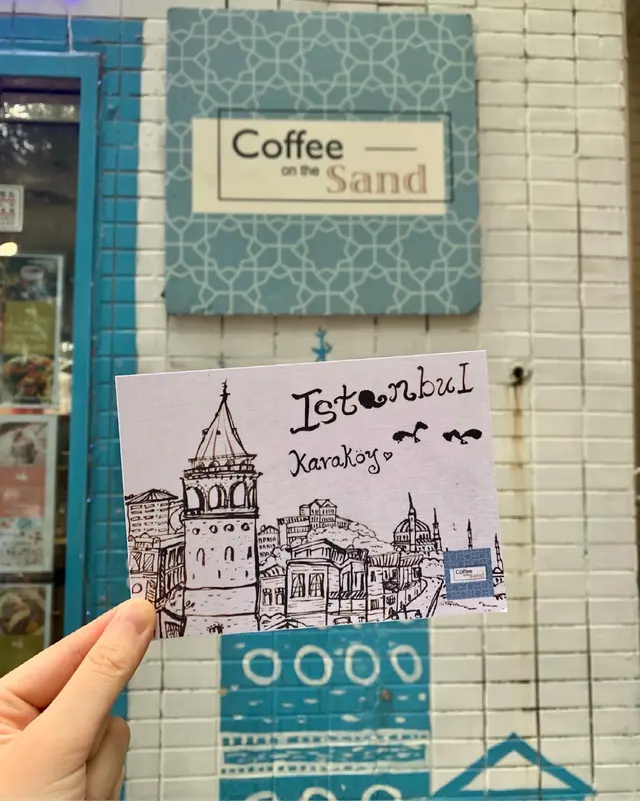 Coffee
on the Sand
Istanbul
Karaköy
Coffee
on the Sand